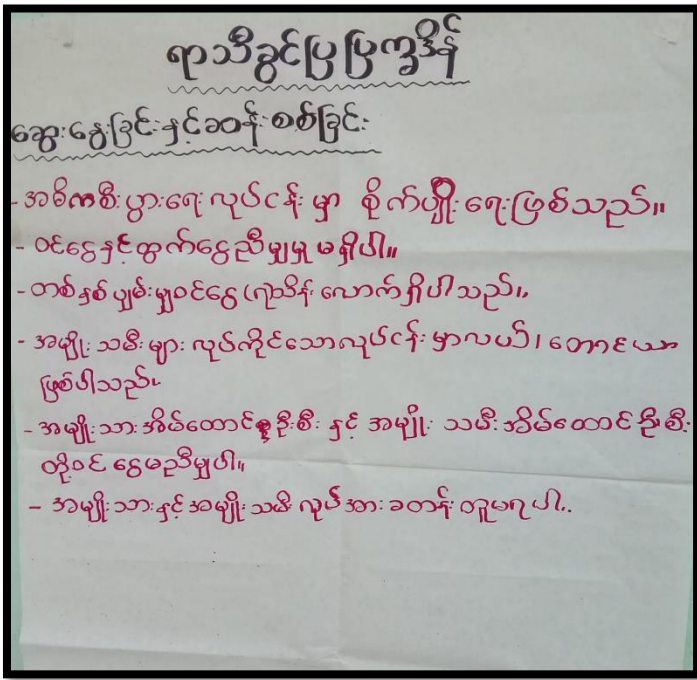 ရာသီခွင်ပြပြက္ခဒိန်
ဆွေးနွေးခြင်းနှင့်ဆန်းစစ်ခြင်း
- အဓိကစီးပွားရေးလုပ်ငန်းမှာ စိုက်ပျိုးရေးဖြစ်သည်။
- ဝင်ငွေနှင့်ထွက်ငွေညီမျှမှုမရှိပါ။
- တစ်နှစ်ပျှမ်းမျှဝင်ငွေ (၅)သိန်းလောက်ရှိပါသည်။
- အမျိုးသမီးများ လုပ်ကိုင်သောလုပ်ငန်းမှာလယ်၊ တောင်ယာ
ဖြစ်ပါသည်။
- အမျိုးသားအိမ်ထောင်ဦးစီး နှင့် အမျိုးသမီးအိမ်ထောင်ဦးစီး
တို့ဝင်ငွေမညီမျှပါ။
- အမျိုးသားနှင့်အမျိုးသမီးလုပ်အားခတန်းတူမရပါ။